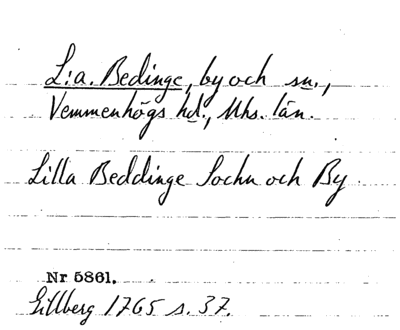 L:a. Bedinge, by och sn.,
Vemmenhögs hd., Mhs. län.
Lilla Beddinge Sochn och By.
Nr 5861.
Gillberg 1765 s. 37.